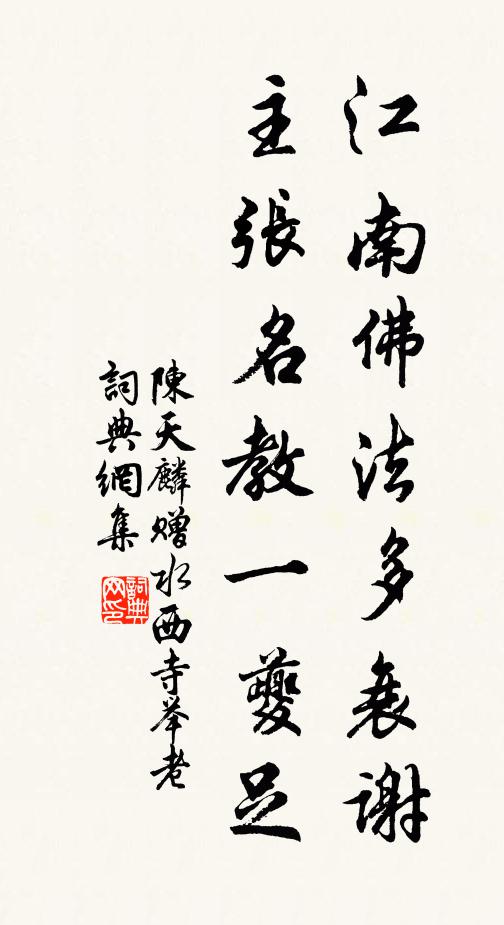 江南佛法多衰謝
主張名教一夔足
陳天麟贈水西寺举老
詞典網集
詞典网印